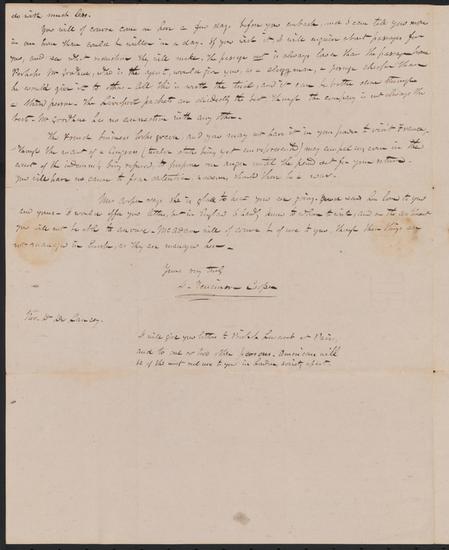 do with much less.
You will of course come on here a few days before you embark, and I can tell you more
in one hour than could be written in a day. If you wish it, I will inquire about passages for
you, and see what reduction they will make, the passage out is always lower than the passage home
Perhaps Mr. Goodhue, who is the agent, would for you, as a clergyman, a passage cheaper than
he would give it to others. All this is worth the trial, and it can be better done through
a third person. The Liverpool packets are decidedly the best, though the company is not always the
best. Mr Goodhue has no connection with any other.
The French business looks grave, and you may not have it in your power to visit France,
Though the want of a Congress may compel us, even in the
event of the indemnity being refused, to postpone our anger until the period set for your return
You will have no cause to fear detention, however, should there be a war.
Mrs Cooper says she is glad to hear you are going. sends her love to you
and yours. I would offer you letters, but in England I hardly know to whom to write, and on the continent
you will not be able to. McAdam will of course be of use to you, though these things are
not managed in Europe, as they are managed here.
Yours very truly
J. Fenimore Cooper
Rev. Dr De Lancey.
I will give you letters to at Paris,
and to one or two other persons. Americans will
be of the most real use to you in London society apart.